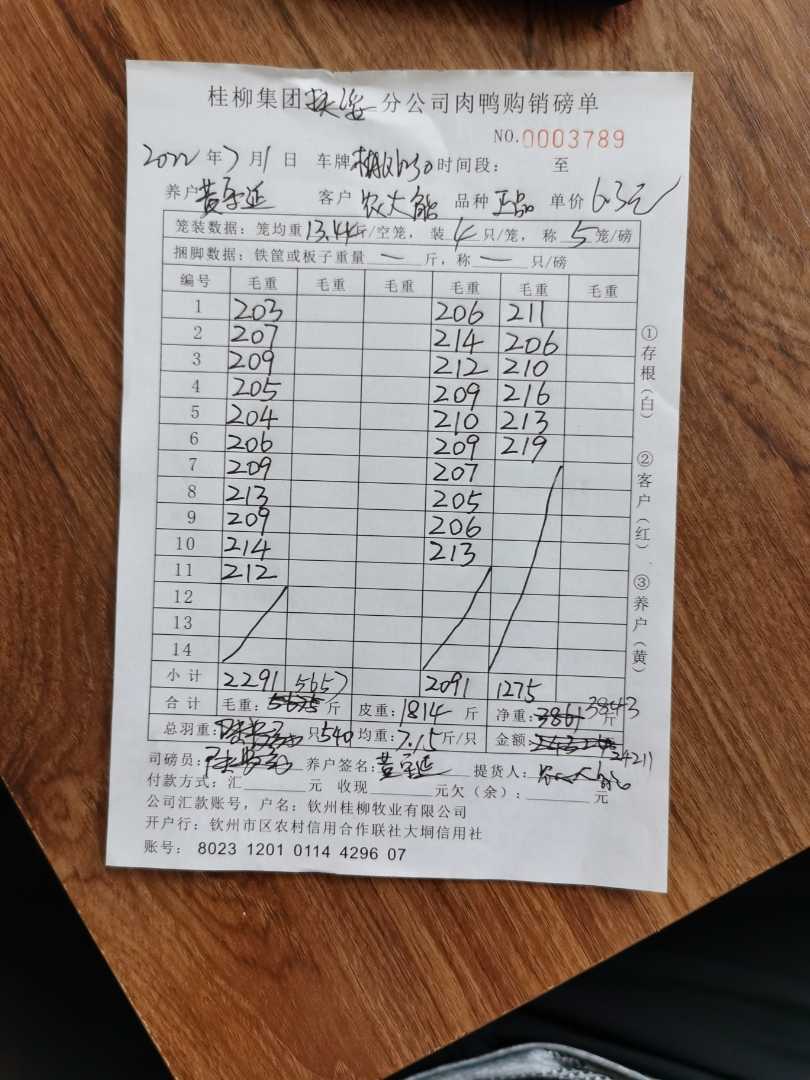 桂柳集团扶绥分公司肉鸭购销磅单
NO.0003789
2022年7月1日 车牌 时间段: 至
养户 黄宇延 客户 农大能 品种 正品 单价 6.3元
笼装数据: 笼均重13.44斤/空笼, 装4只/笼, 称5笼/磅
捆脚数据: 铁筐或板子重量 — 斤, 称 — 只/磅
编号 毛重 毛重 毛重 毛重 毛重 毛重
1 203 206 211
2 207 214 206
3 209 212 210
4 205 209 216
5 204 210 213
6 206 209 219
7 209 207
8 213 205
9 209 206
10 214 213
11 212
12
13
14
小计 2291 5657 2091 1275
合计 毛重: 5675 斤 皮重: 1814 斤 净重: 3861 3843 斤
总羽重: 只 540 均重: 7.15斤/只 金额: 24211
司磅员: 养户签名: 黄宇延 提货人: 农大能
付款方式: 汇 元 收现 元欠(余): 元
公司汇款账号, 户名: 钦州桂柳牧业有限公司
开户行: 钦州市区农村信用合作联社大垌信用社
账号: 8023 1201 0114 4296 07
①存根(白) ②客户(红) ③养户(黄)